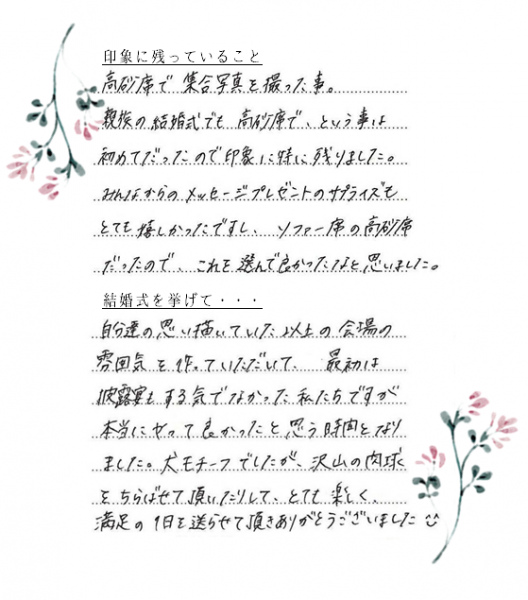 印象に残っていること
高砂席で集合写真を撮った事。
親族の結婚式でも高砂席で、という事は
初めてだったので印象に特に残りました。
みんなからのメッセージプレゼントのサプライズも
とても嬉しかったですし、ソファー席の高砂席
だったので、これを選んで良かったなと思いました。
結婚式を挙げて・・・
自分達の思い描いていた以上の会場の
雰囲気を作っていただいて、最初は
披露宴もする気でなかった私たちですが
本当にやって良かったと思う時間となり
ました。犬モチーフでしたが、沢山の肉球
をちらばせて頂いたりして、とても楽しく、
満足の1日を送らせて頂きありがとうございました